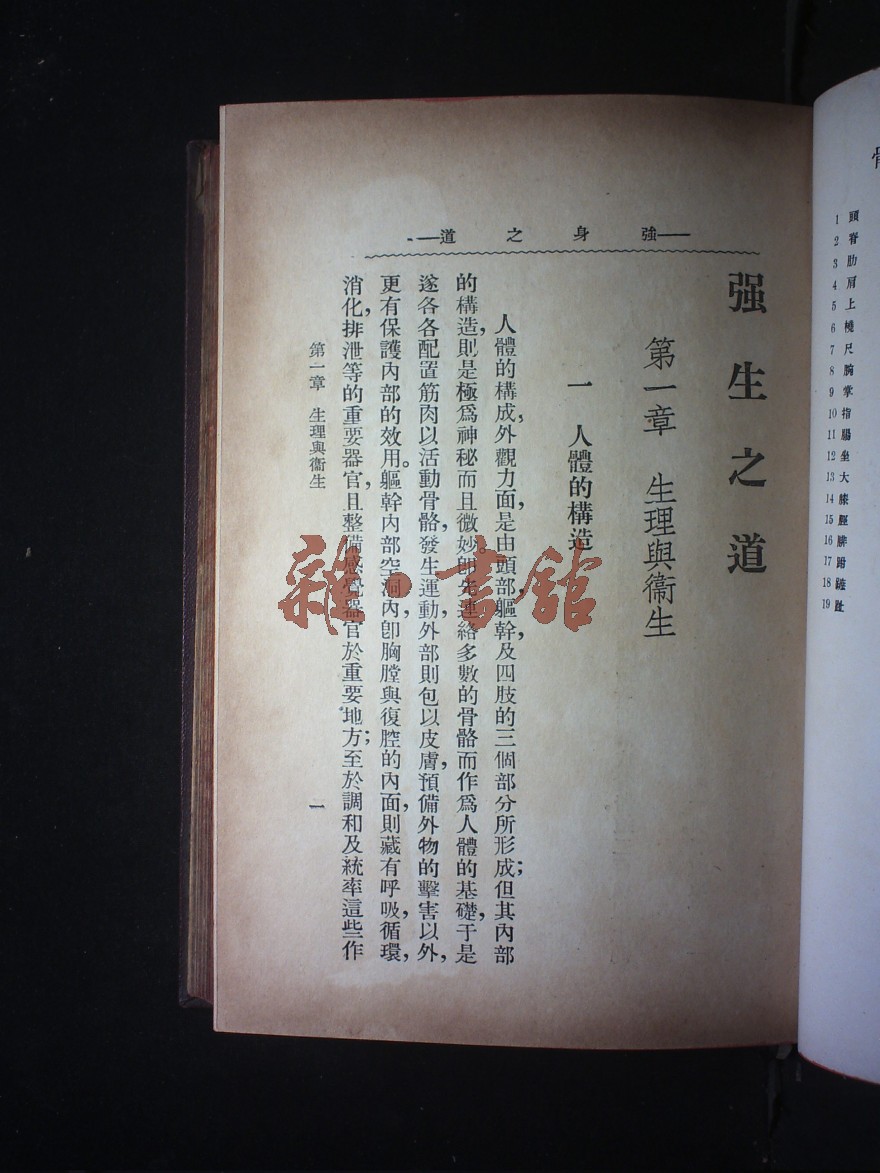 —強身之道—
强生之道
第一章 生理與衞生
一 人體的構造
人體的構成，外觀力面，是由頭部，軀幹，及四肢的三個部分所形成；但其內部
的構造，則是極爲神秘而且微妙。卽先連絡多數的骨骼而作爲人體的基礎，于是
遂各各配置筋肉以活動骨骼，發生運動，外部則包以皮膚，預備外物的擊害以外，
更有保護內部的效用。軀幹內部空洞，內卽胸膛與復腔的內面，則藏有呼吸，循環，
消化，排泄等的重要器官，且整備感覺器官於重要地方；至於調和及統率這些作
第一章 生理與衞生
一
雜·書館
1 頭
2 脊
3 肋
4 肩
5 上
6 橈
7 尺
8 腕
9 掌
10 指
11 腸
12 坐
13 大
14 膝
15 脛
16 腓
17 跗
18
19 趾